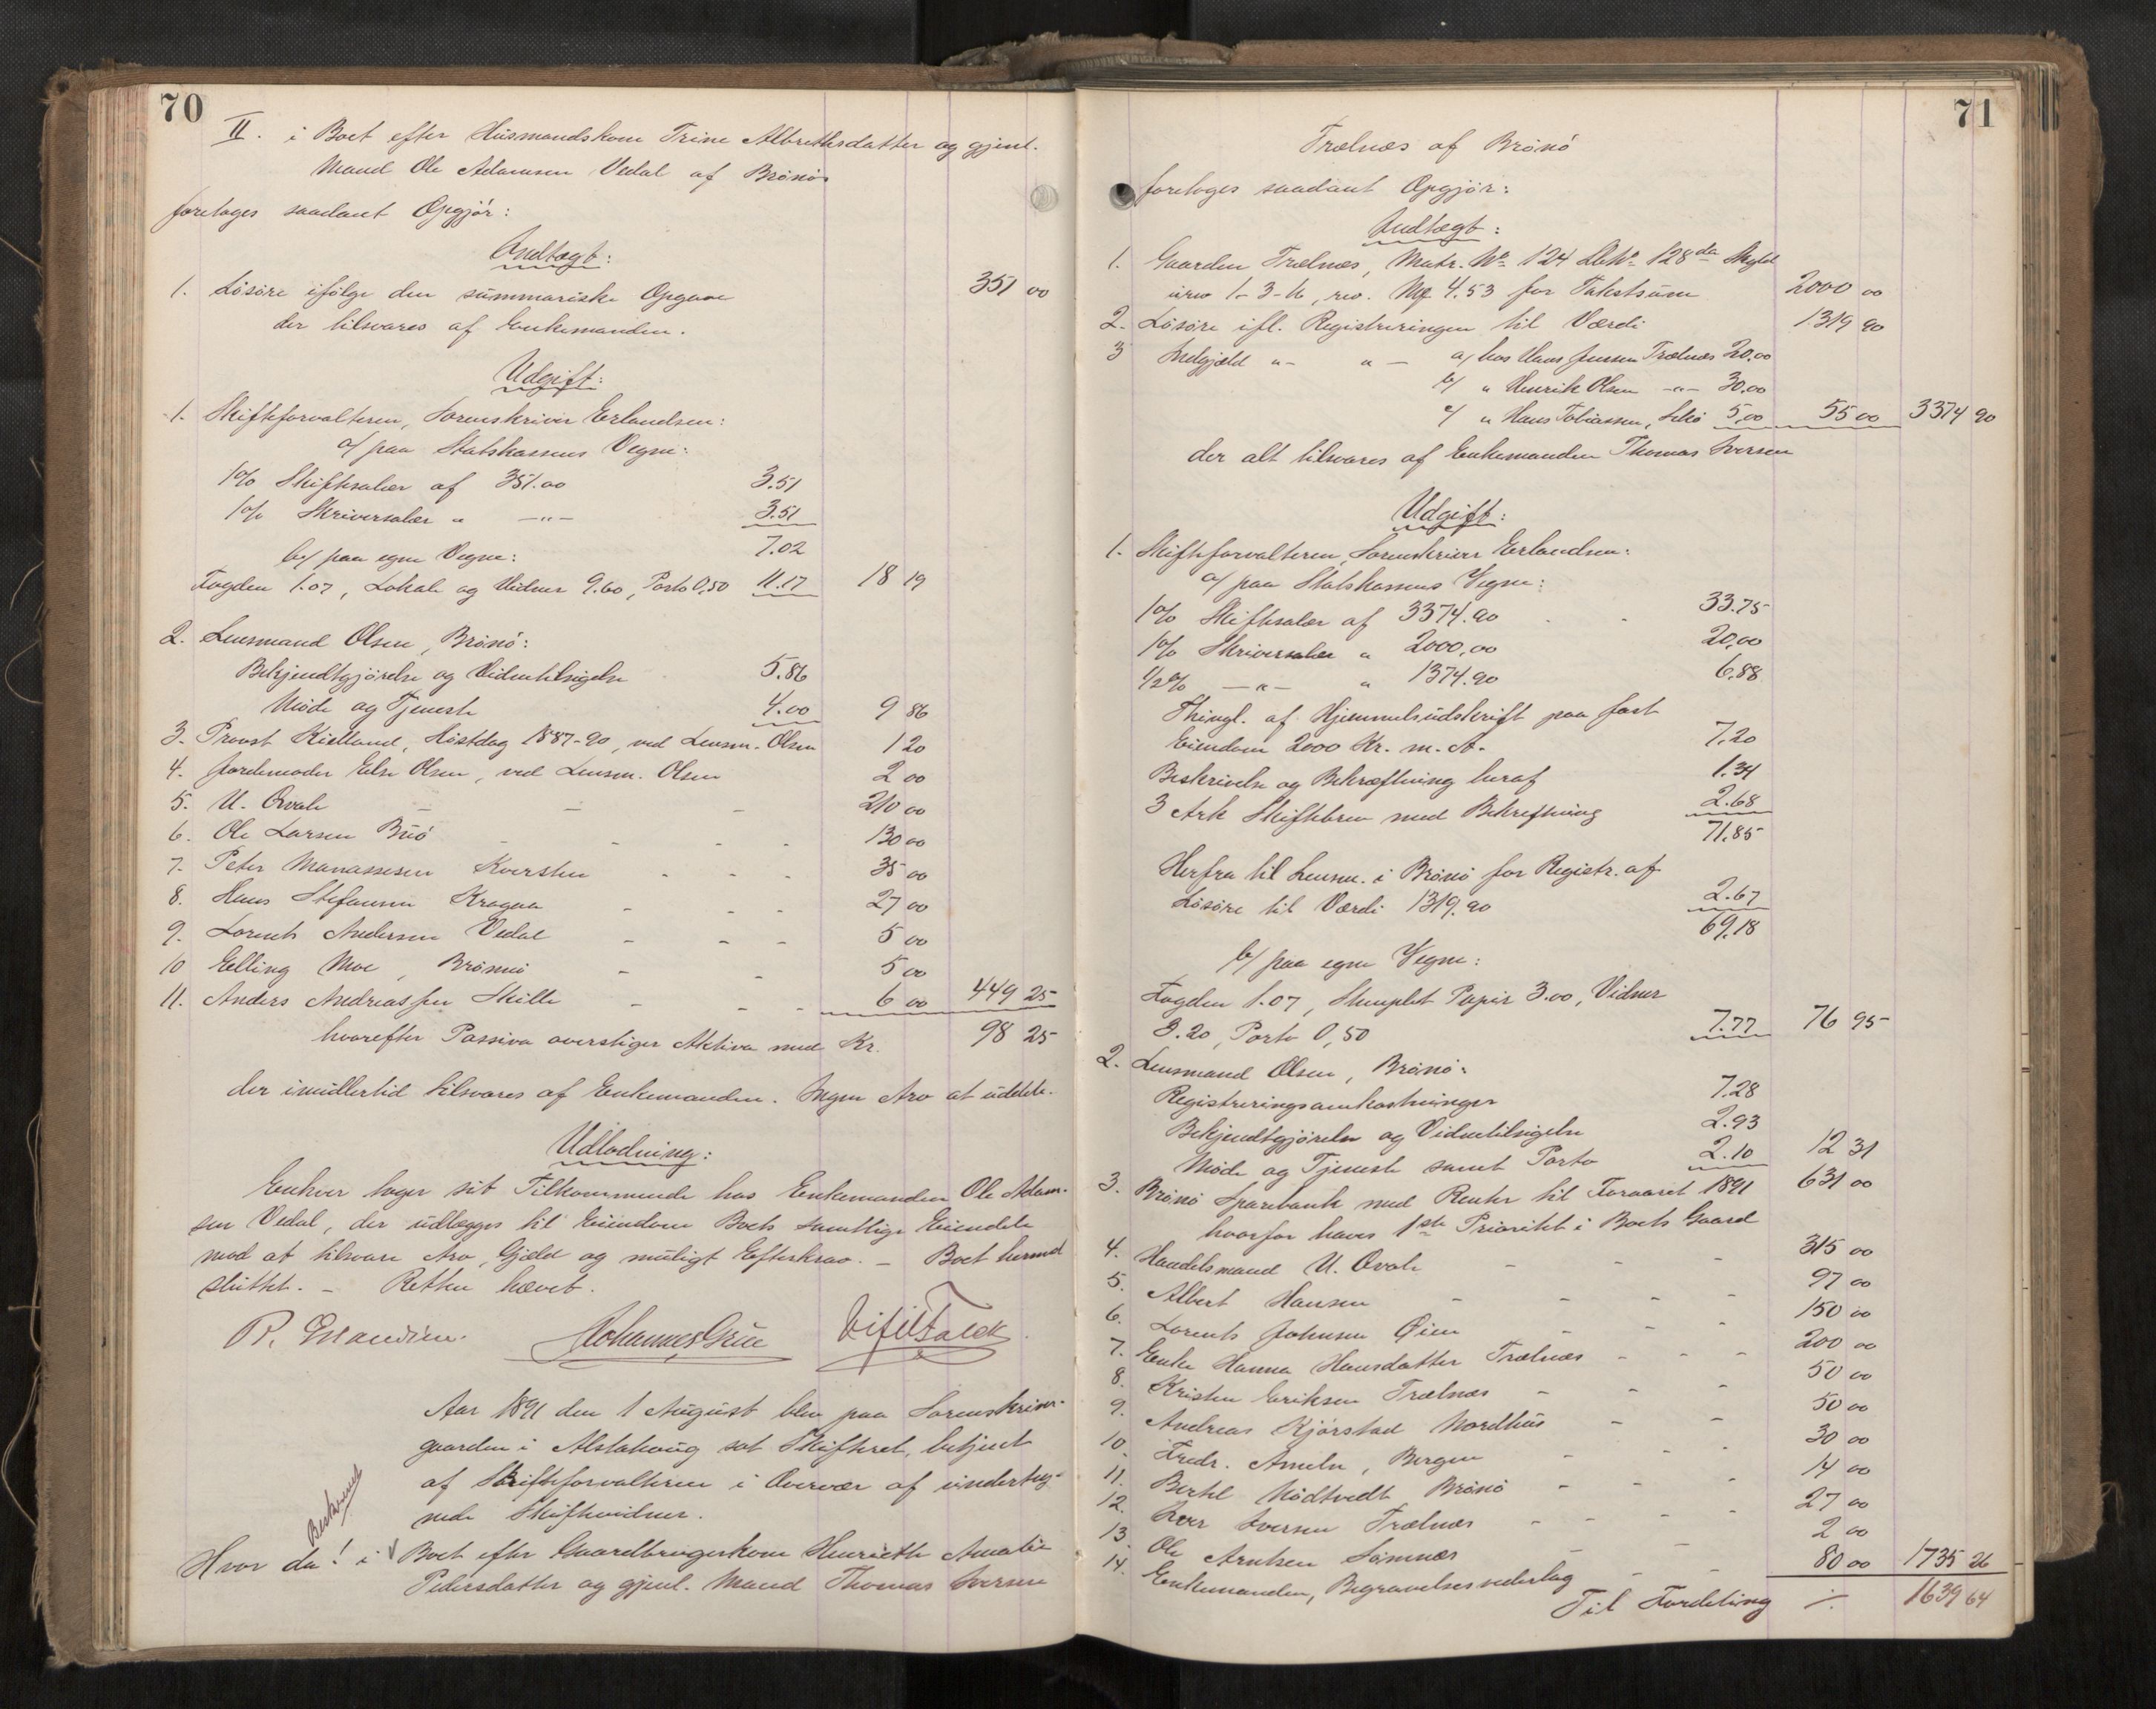 70
II. i Boet efter Husmandskone Trine Albrethsdatter og gjenl.
Mand Ole Adamsen Vedal af Brönö
foretoges saadant Opgjör:
Indtægt:
1. Lösöre ifölge den summariske Opgave 351 00
der tilsvares af Enkemanden.
Udgift:
1. Skifteforvalteren, Sorenskriver Erlandsen:
a/ paa Statskassens Vegne:
1% Skiftesalær af 351.00 3.51
1% Skriversalær " -"- 3.51
7.02
b/ paa egne Vegne:
Fogden 1.07, Lokale og Vidner 9.60, Porto 0,50 11.17 18 19
2. Lensmand Olsen, Brönö:
Bekjendtgjörelse og Vidnetilsigelse 5.86
Möde og Tjeneste 4.00 9 86
3. Provst Kielland, Höstdag 1887-90, ved Lensm. Olsen 1 20
4. Jordemoder Else Olsen, ved Lensm. Olsen 2 00
5. U. Qvale - - - 210 00
6. Ole Larsen Buö - - - - 130 00
7. Peter Manassesen Kversten - - - 35 00
8. Hans Stefansen Kragaa - - - 27 00
9. Lorents Andersen Vedal - - - 5 00
10 Elling Moe, Brönnö - - 5 00
11. Anders Andreassen Skille - - - 6 00 449 25
hvorefter Passiva overstiger Aktiva med Kr. 98 25
der imidlertid tilsvares af Enkemanden. Ingen Arv at uddele.
Udlodning:
Enhver tager sit Tilkommende hos Enkemanden Ole Adam-
sen Vedal, der udlægges til Eiendom Boets samtlige Eiendele
mod at tilsvare Arv, Gjæld og muligt Efterkrav. - Boet hermed
sluttet. - Retten hævet.
R. Erlandsen. Johannes Grüe
Aar 1891 den 1 August blev paa Sorenskriver-
gaarden i Alstahoug sat Skifteret, betjent
af Skifteforvalteren i Overvær af underteg-
nede Skiftevidner.
Hvor da! i Boet efter Gaardbrugerkone Henriette Amalie
Pedersdatter og gjenl. Mand Thomas Iversen
71
Trælnæs af Brönö
foretoges saadant Opgjör:
Indtægt:
1. Gaarden Trælnæs, Matr. No 124 LNo 128da Skyld
urev 1-3-16, rev. Mk 4.53 for Takstsum 2000 00
2. Lösöre ifl. Registreringen til Værdi 1319 90
3 Indgjæld "- "- a/ hos Hans Jensen Trælnæs 20.00
b/ " Henrik Olsen -"- 30.00
c/ " Hans Tobiassen, 5,00 55 00 3374 90
der alt tilsvares af Enkemanden Thomas Iversen
Udgift:
1. Skifteforvalteren, Sorenskriver Erlandsen:
a/ paa Statskassens Vegne:
1% Skiftesalær af 3374.90 33.75
1% Skriversalær " 2000,00 20,00
1/2% -"- " 1374.90 6.88
Thingl. af Hjemmelsudskrift paa fast
Eiendom 2000 Kr. m. A. 7.20
Beskrivelse og Bekræftning heraf 1.34
3 Ark Skiftebrev med Bekreftning 2.68
71,85
Herfra til Lensm. i Brönö for Registr. af
Lösöre til Værdi 1319,90 2.67
69,18
b/ paa egne Vegne:
Fogden 1.07, Stemplet Papir 3.00, Vidner
3.20, Porto 0,50 7.77 76 95
2. Lensmand Olsen, Brönö:
Registreringsomkostninger 7.28
Bekjendtgjörelse og Vidnetilsigelse 2.93
Möde og Tjeneste samt Porto 2.10 12 31
3. Brönö Sparebank med Renter til Foraaret 1891 631 00
hvorfor haves 1ste Prioritet i Boets Gaard
4. Handelsmand U. Qvale - - - 315 00
5. Albert Hansen - - - - 97 00
6. Lorents Johnsen Öien - - - 150 00
7. Enke Hanna Hansdatter Trælnæs - - - 200 00
8. Kristen Eriksen Trælnæs - - - 50 00
9. Andreas Kjörstad Nordhus - - 50 00
10. Fredr. Ameln, Bergen - - - 30 00
11. Bertel Nödtvedt Brönö - - - 14 00
12. Iver Iversen Trælnæs - - - - 27 00
13. Ole Arntsen Sömnæs - - 2 00
14. Enkemanden, Begravelsesvederlag - - 80 00 1735 26
Til Fordeling ./. 1639 64